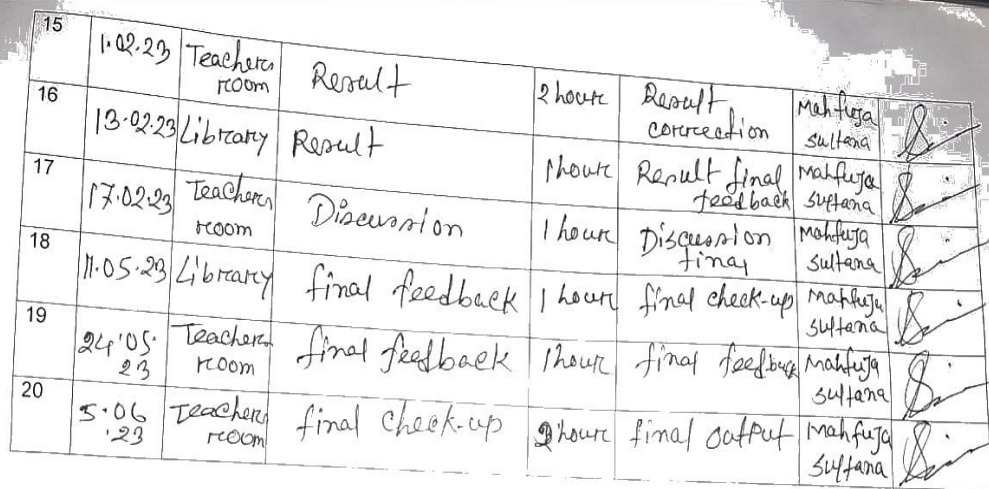 15 1.02.23 Teachers room Result 2 hour Result correction Mahfuja Sultana
16 13.02.23 Library Result 1 hour Result final feedback Mahfuja Sultana
17 17.02.23 Teachers room Discussion 1 hour Discussion final Mahfuja Sultana
18 11.05.23 Library final feedback 1 hour final check-up Mahfuja Sultana
19 24.05.23 Teachers room final feedback 1 hour final feedback Mahfuja Sultana
20 5.06.23 Teachers room final check-up hour final output Mahfuja Sultana